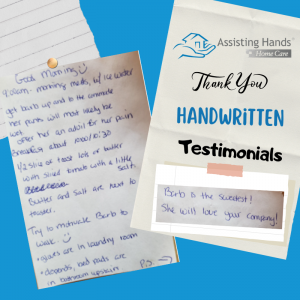 Good Morning
70am, morning meds, w/ ice water
get barb up and to the commode
her pants will most likely be
wet
offer her an advil for her pain
Breakfast about 10:00/10:30
1/2 slice of toast lots of butter
with sliced tomato with a little
salt.
Butter and salt are next to
toaster.
Try to motivate Barb to
walk
gloves are in laundry room
depends, bed pads are
in bathroom upstairs
Assisting Hands
Home Care
Thank You
HANDWRITTEN
Testimonials
Barb is the sweetest!
She will love your company!